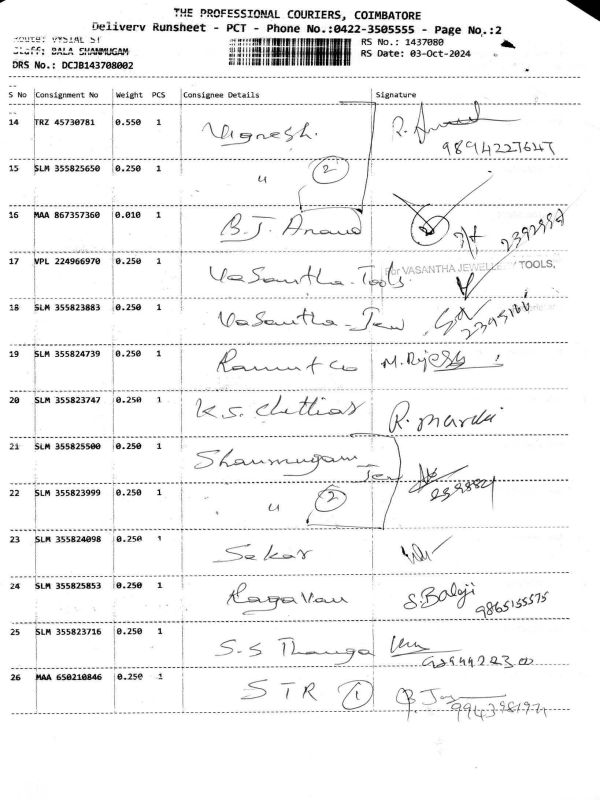 THE PROFESSIONAL COURIERS, COIMBATORE
Delivery Runsheet - PCT - Phone No.:0422-3505555 - Page No.:2
Route: VYSIAL ST
RS No.: 1437080
Staff: BALA SHANMUGAM
RS Date: 03-Oct-2024
DRS No.: DCJB143708002
S No Consignment No Weight PCS Consignee Details Signature
14 TRZ 45730781 0.550 1 Vignesh.
9894227647
15 SLM 355825650 0.250 1 " 2
16 MAA 867357360 0.010 1 B.J. Anand
17 VPL 224966970 0.250 1 Vasantha-Tools
For VASANTHA JEWELLERY TOOLS,
18 SLM 355823883 0.250 1 Vasantha-Jew
19 SLM 355824739 0.250 1 M.Rijesh
20 SLM 355823747 0.250 1 K.S. Chettiar
21 SLM 355825500 0.250 1 Shanmugam Jew
22 SLM 355823999 0.250 1 " 2
23 SLM 355824098 0.250 1 Sekar
24 SLM 355825853 0.250 1 Ragavan S.Balaji
9865155575
25 SLM 355823716 0.250 1 S.S Thanga
26 MAA 650210846 0.250 1 STR 1